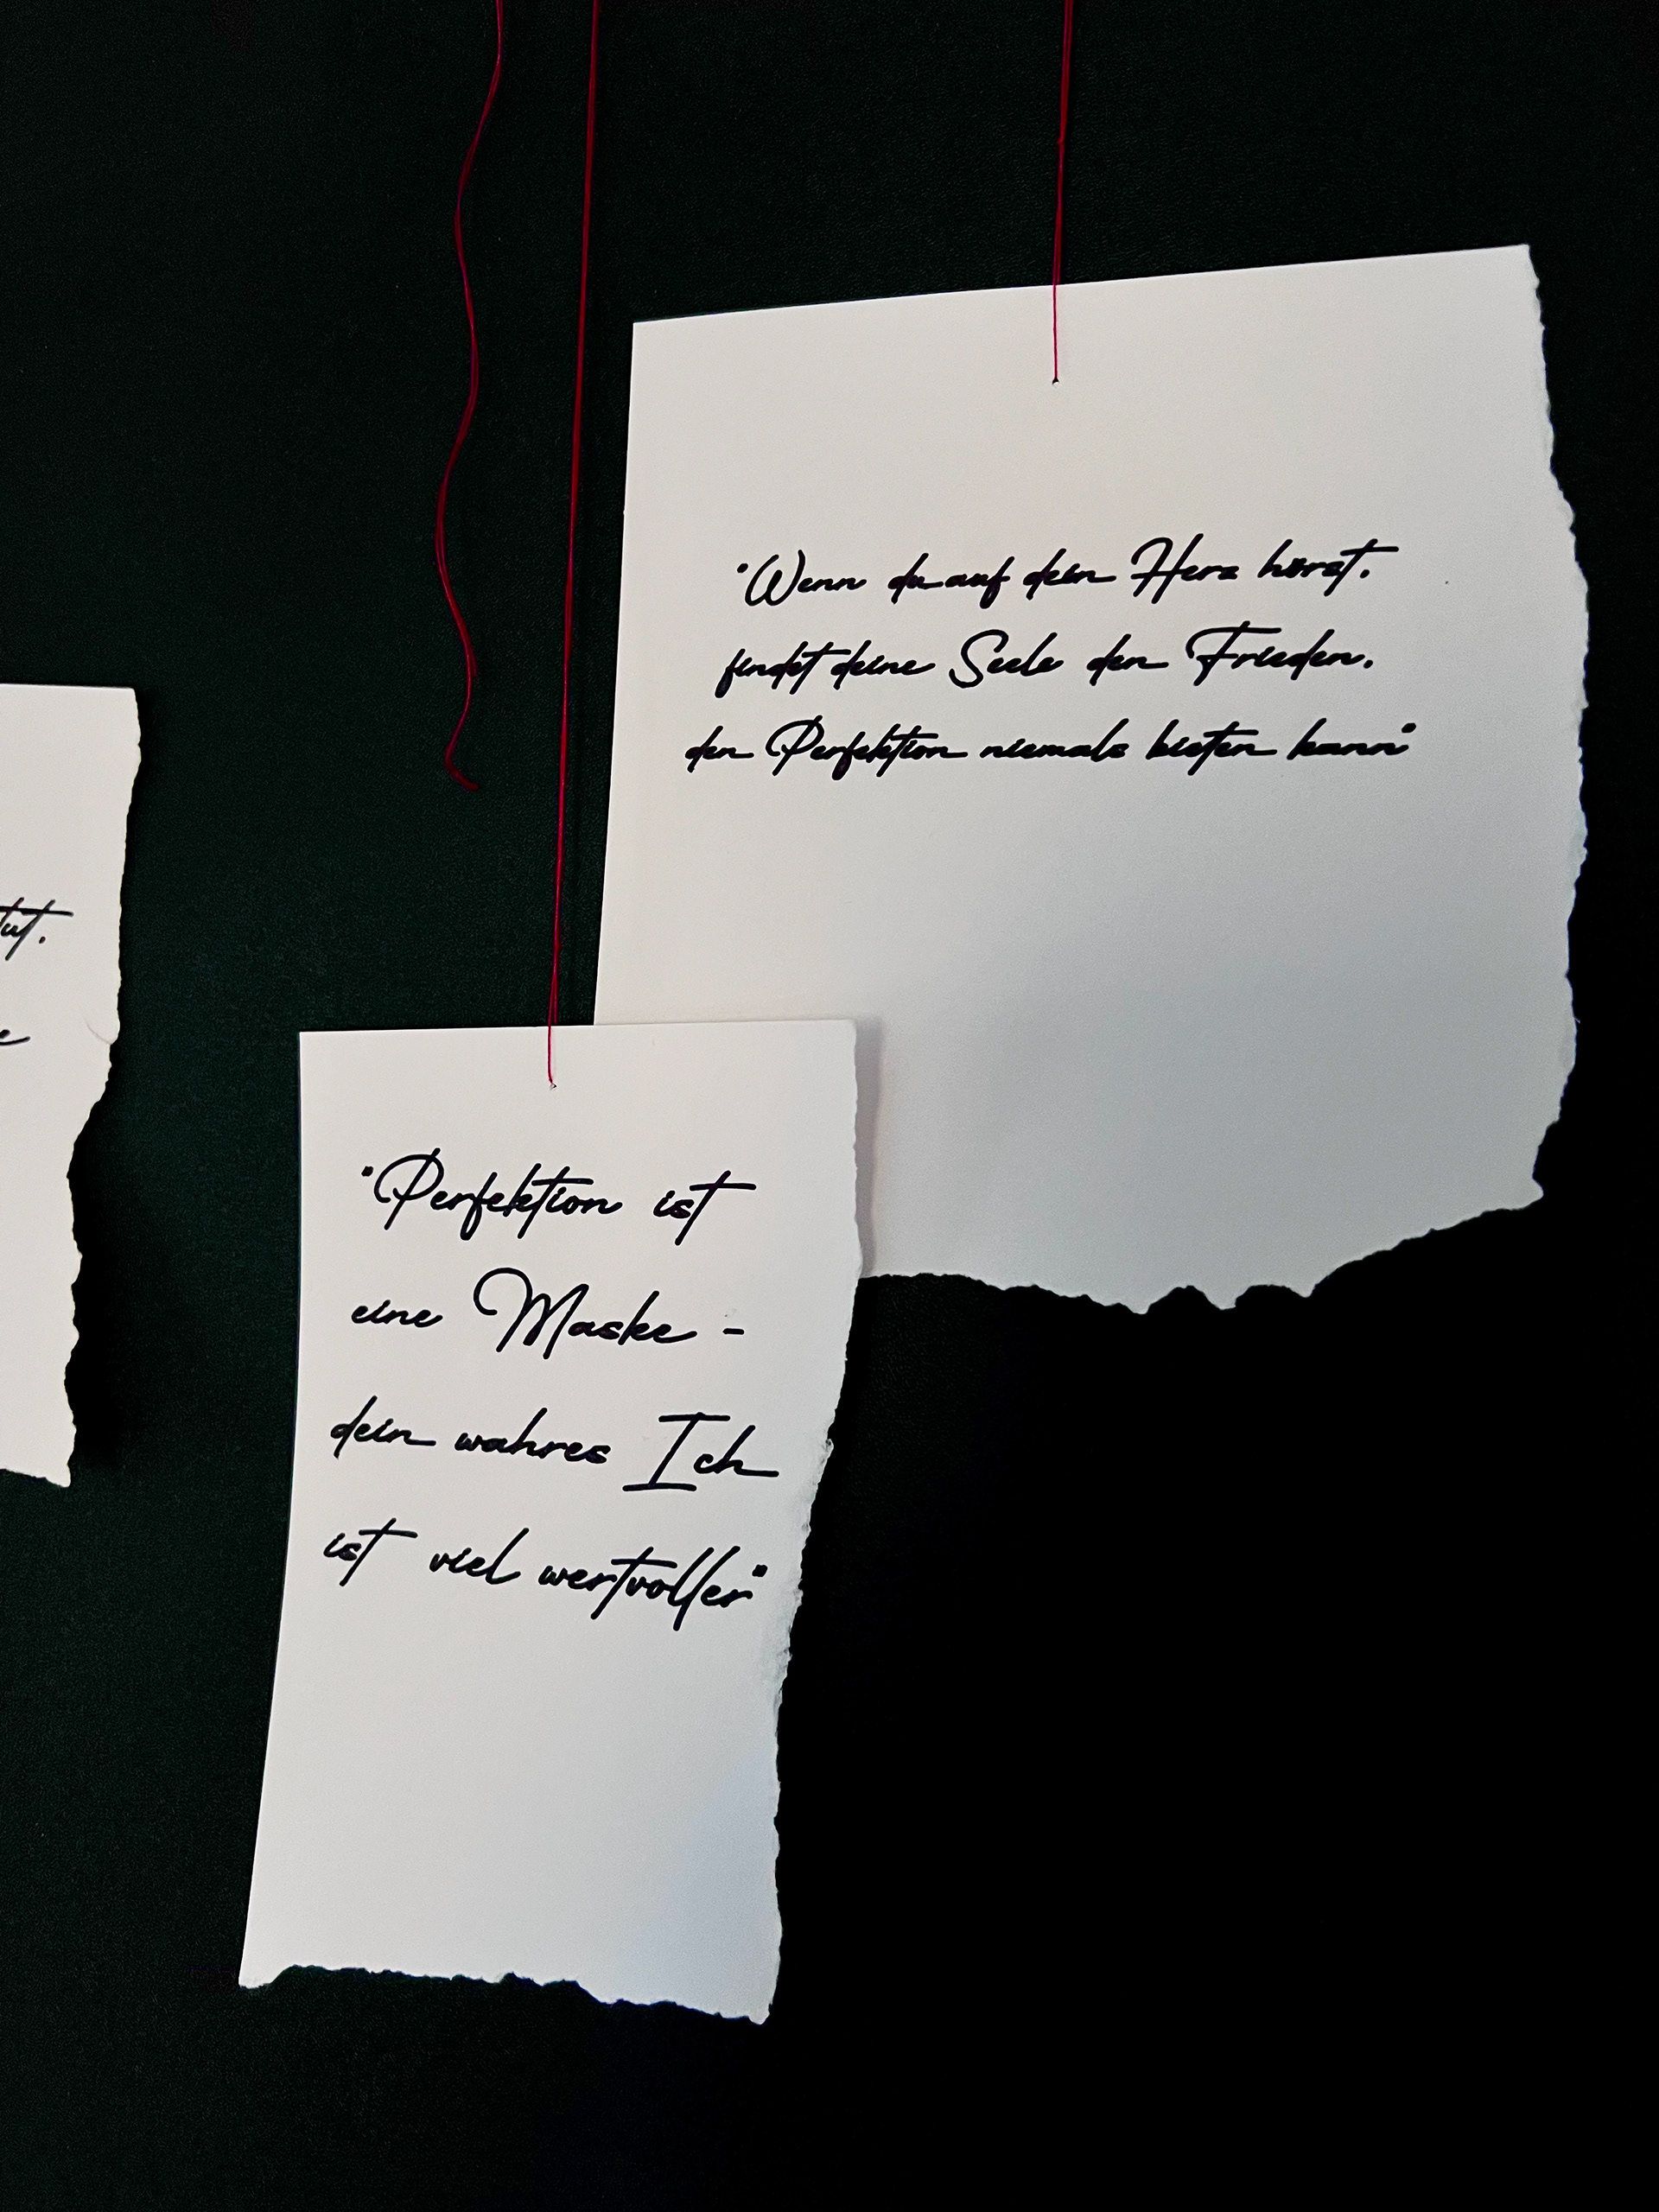 "Wenn du auf dein Herz hörst,
findet deine Seele den Frieden,
den Perfektion niemals bieten kann"
"Perfektion ist
eine Maske -
dein wahres Ich
ist viel wertvoller"